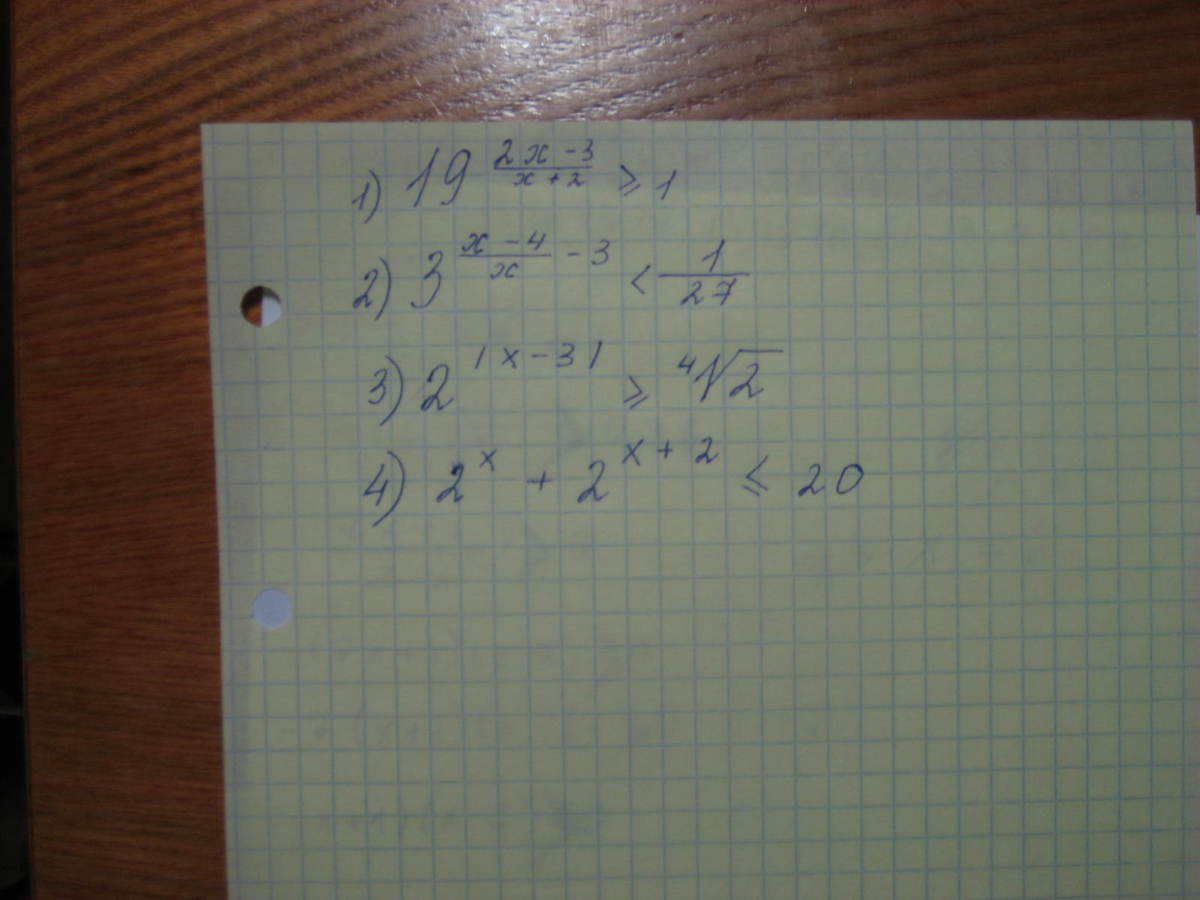 1) 19^((2x-3)/(x+2)) ⩾ 1
2) 3^((x-4)/x - 3) < 1/27
3) 2^(|x-3|) ⩾ ⁴√2
4) 2^x + 2^(x+2) ⩽ 20